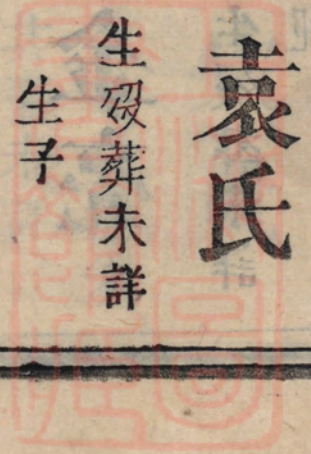 袁氏
生殁葬未詳
生子